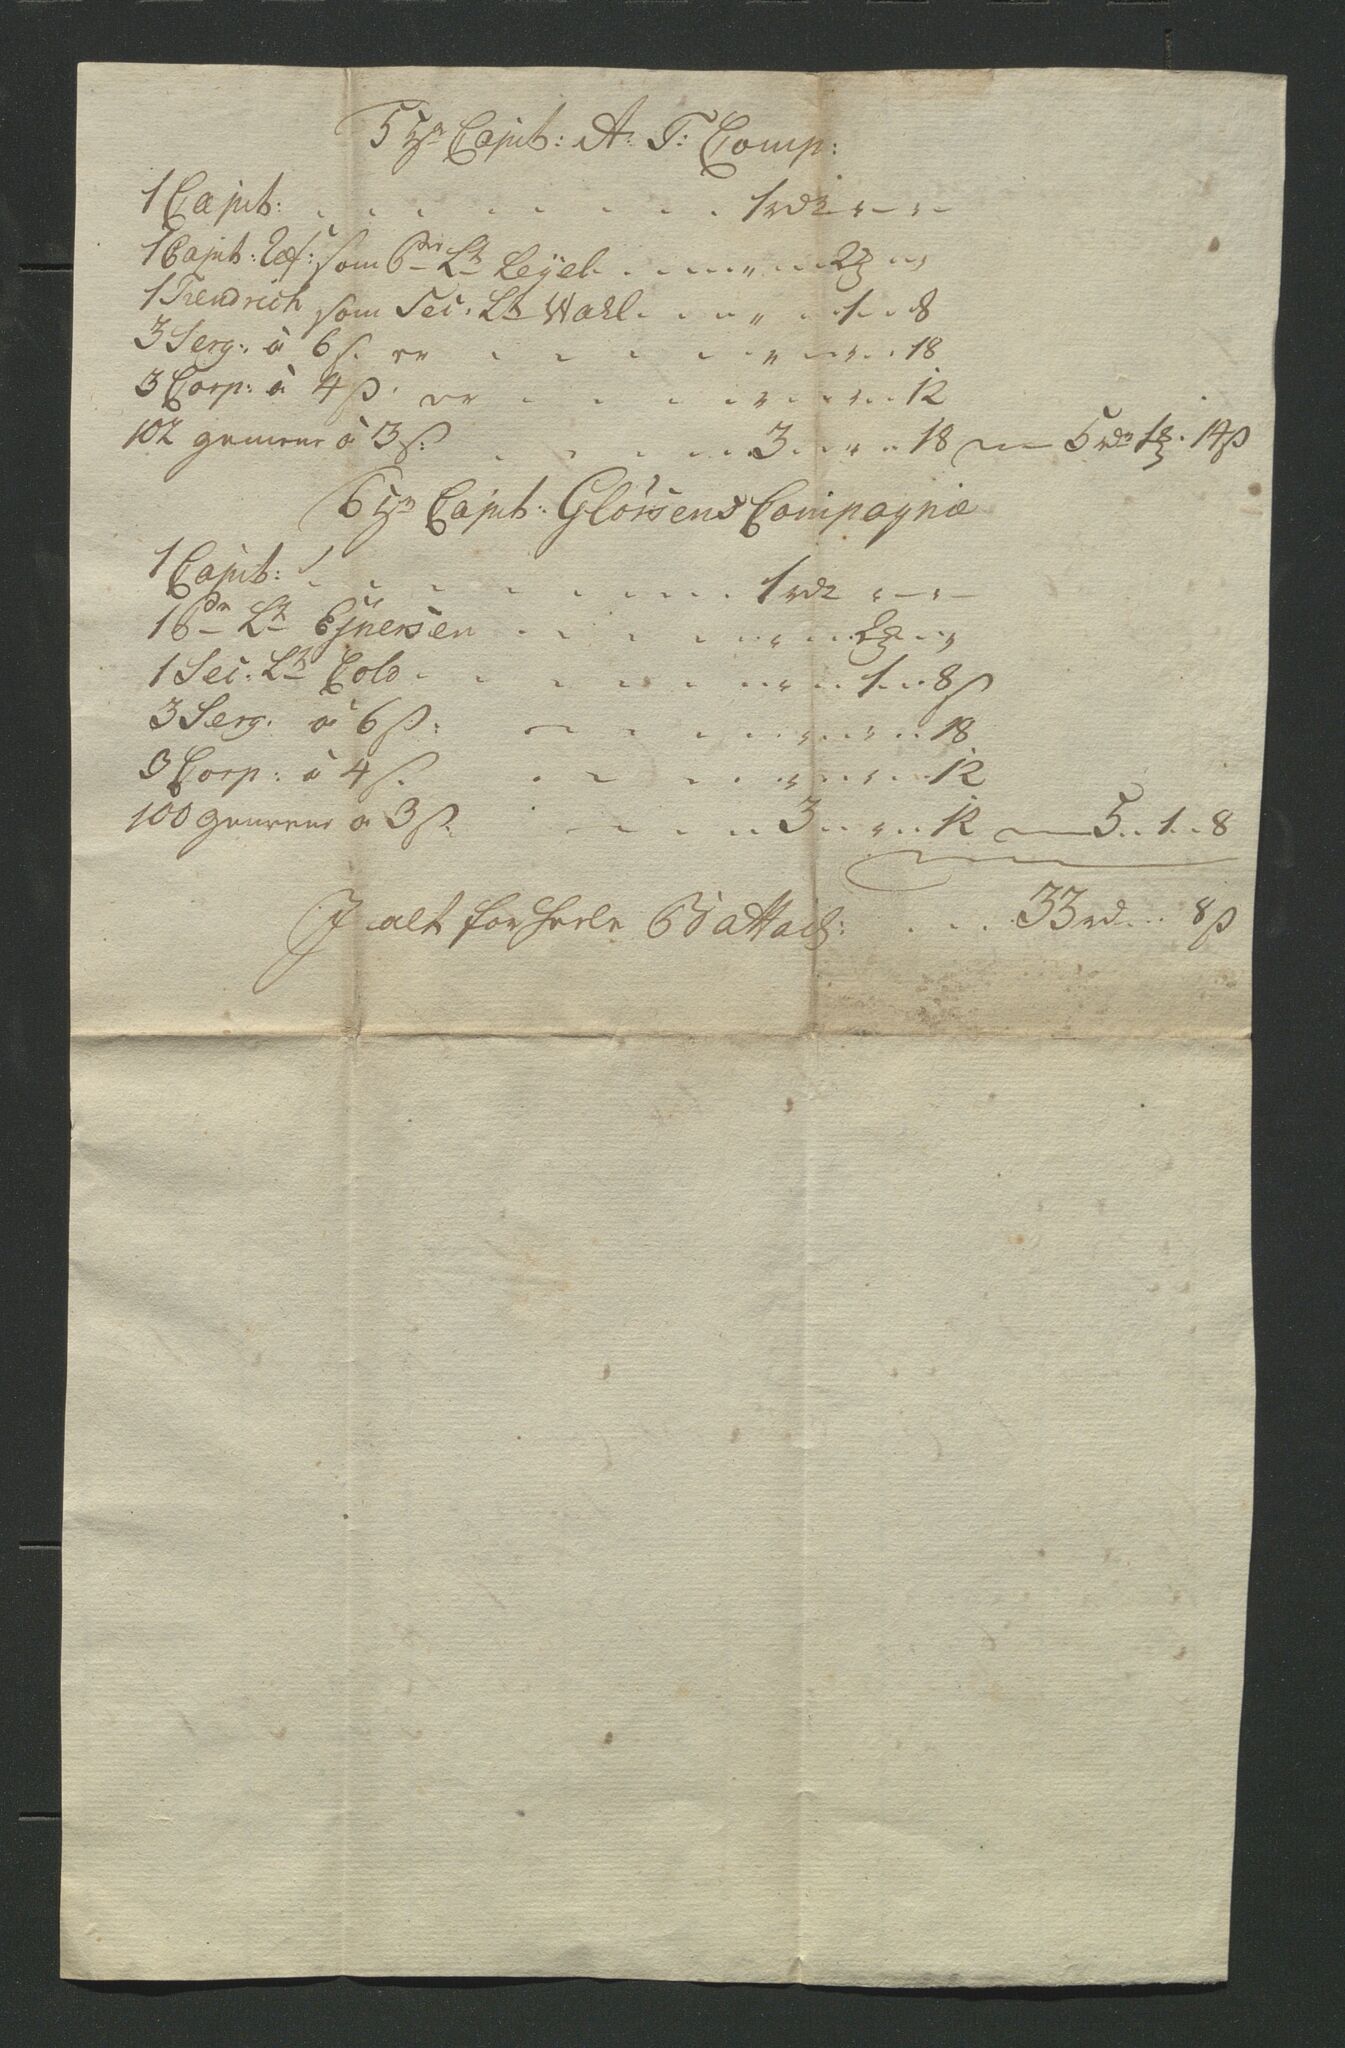 5te Capit: A: T: Comp:
1 Capit: . . . . . . . . 1 rdr " — " —
1 Capit: Lt: som Pr: Lt Leÿel . . . . . " . . 2 ℥ . . "
1 Fendrich som Sec: Lt Wahl . . . " . . 1 . . 8
3 Serg: à 6 ß. er . . . . . " . . " . . 18
3 Corp: à 4 ß. er . . . . . " . . " . . 12
102 gemene à 3 ß: . . . . . 3 . . " . . 18 — 5 rdr 1 ℥ . 14 ß
6te Capit: Glörsens Compagnie
1 Capit: . . . . . . . . 1 rdr " — " —
1 Pr Lt Ejnersen . . . . . " . . 2 ℥ . . "
1 Sec: Lt Cold . . . . . . " . . 1 . . 8 ß
3 Serg: à 6 ß: . . . . . " . . " . . 18
3 Corp: à 4 ß. . . . . . " . . " . . 12
100 gemene à 3 ß: . . . . 3 . . " . . 12 — 5 . . 1 . . 8
J alt for hele Battail: . . . 33 rd . . 8 ß